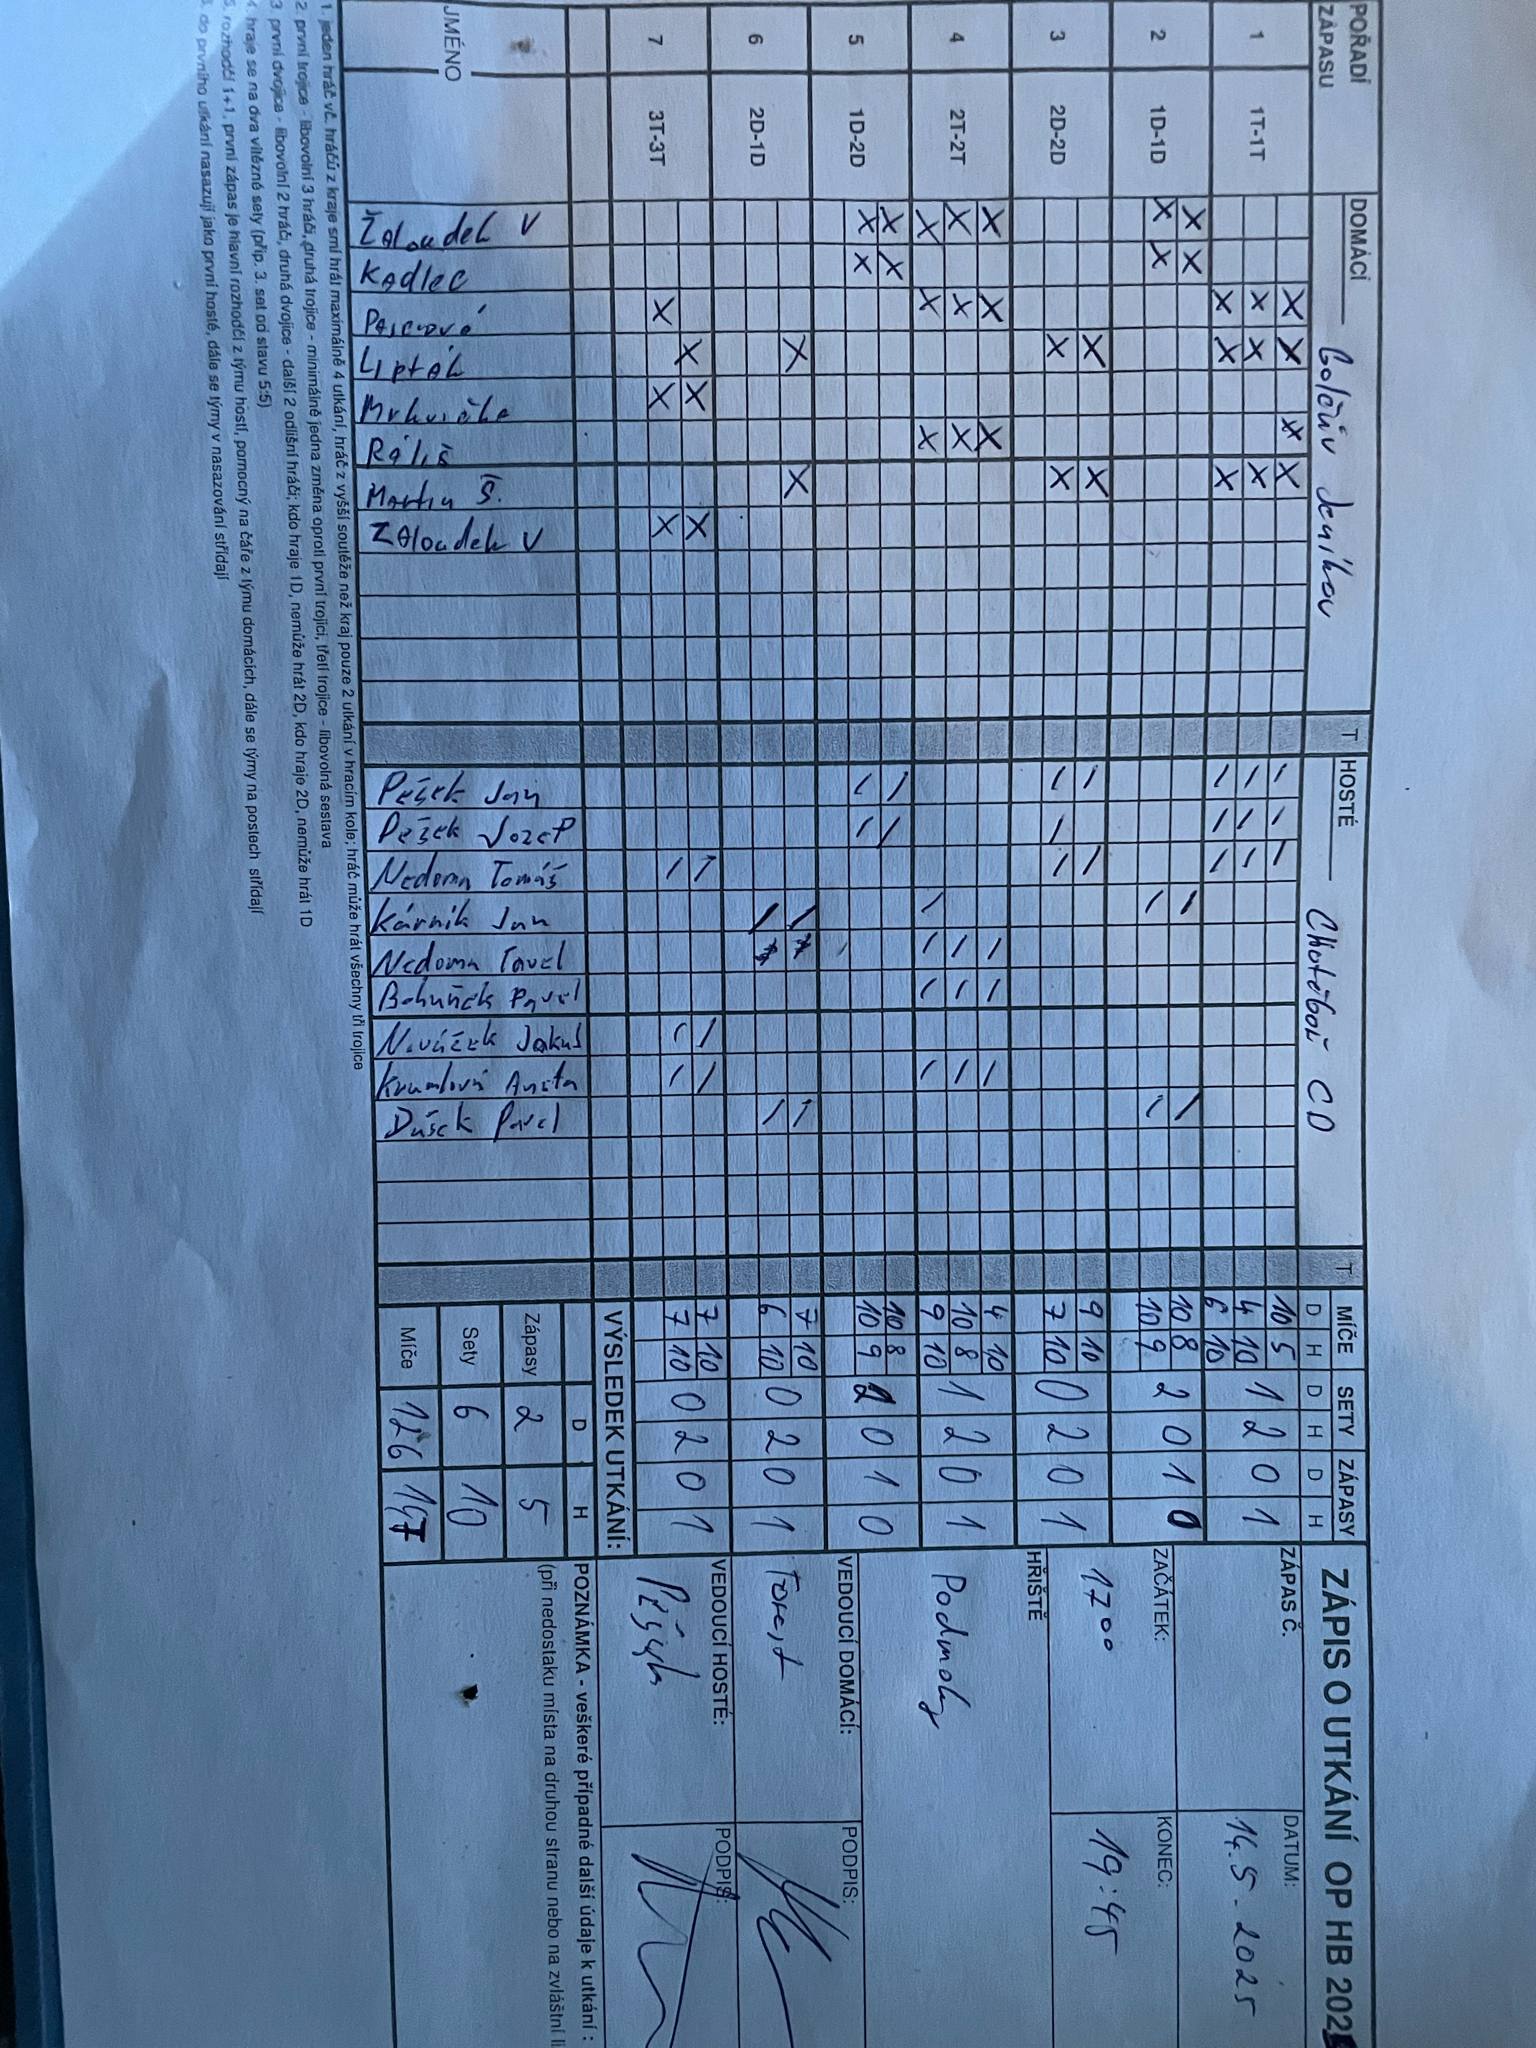 POŘADÍ ZÁPASU
DOMÁCÍ Golčův Jeníkov T
HOSTÉ Chotěboř CD T
MÍČE SETY ZÁPASY
D H D H D H
ZÁPIS O UTKÁNÍ OP HB 2025
1 1T-1T
10 5
4 10
6 10
1 2 0 1
2 1D-1D
10 8
10 9
2 0 1 0
3 2D-2D
9 10
7 10
0 2 0 1
4 2T-2T
4 10
10 8
9 10
1 2 0 1
5 1D-2D
10 8
10 9
2 0 1 0
6 2D-1D
7 10
6 10
0 2 0 1
7 3T-3T
7 10
7 10
0 2 0 1
JMÉNO
Žaloudek V
Kadlec
Lipták
Mrkvička
Martin Š.
Žaloudek V
Pešek Jan
Pešek Jozef
Nedoma Tomáš
Kárník Jan
Nedoma Pavel
Bohuněk Pavel
Nováček Jakub
Krumlová Aneta
Dušek Pavel
VÝSLEDEK UTKÁNÍ:
D H
Zápasy 2 5
Sety 6 10
Míče 126 147
ZÁPAS Č. DATUM: 14.5.2025
ZAČÁTEK: 17 00 KONEC: 19:45
HŘIŠTĚ Podmoky
VEDOUCÍ DOMÁCÍ: PODPIS:
VEDOUCÍ HOSTÉ: PODPIS:
POZNÁMKA - veškeré případné další údaje k utkání :
(při nedostaku místa na druhou stranu nebo na zvláštní li
1. jeden hráč vč. hráčů z kraje smí hrát maximálně 4 utkání, hráč z vyšší soutěže než kraj pouze 2 utkání v hracím kole; hráč může hrát všechny tři trojice
2. první trojice - libovolní 3 hráči, druhá trojice - minimálně jedna změna oproti první trojici, třetí trojice - libovolná sestava
3 první dvojice - libovolní 2 hráči, druhá dvojice - další 2 odlišní hráči; kdo hraje 1D, nemůže hrát 2D, kdo hraje 2D, nemůže hrát 1D
4. hraje se na dva vítězné sety (příp. 3. set od stavu 5:5)
5. rozhodčí 1+1, první zápas je hlavní rozhodčí z týmu hostí, pomocný na čáře z týmu domácích, dále se týmy na postech střídají
do prvního utkání nasazují jako první hosté, dále se týmy v nasazování střídají